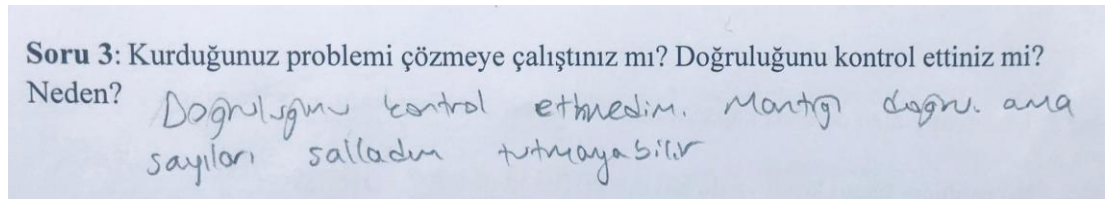 Soru 3: Kurduğunuz problemi çözmeye çalıştınız mı? Doğruluğunu kontrol ettiniz mi?
Neden? Doğruluğunu kontrol etmedim. Mantığı doğru. ama
sayıları salladım tutmayabilir